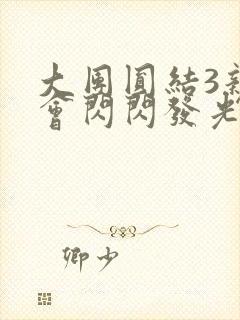 大團圓結3新
會閃閃發光
卿少